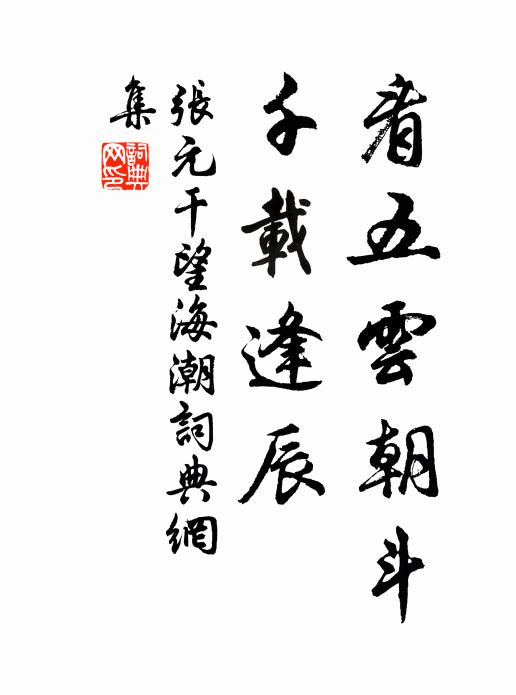 看五雲朝斗
千載逢辰
張元干望海潮詞典網
集
詞典
网印